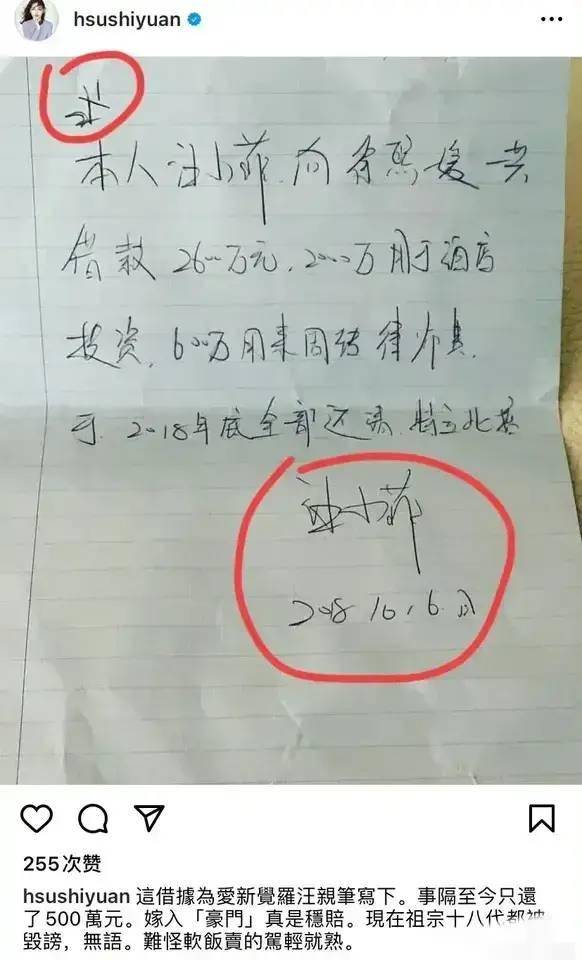 hsushiyuan
本人汪小菲,向徐熙媛共
借款2600万元,2000万用于酒店
投资,600万用来周转律师
于2018年底全部还清.特立此据
汪小菲
2018.10.6.日
255次赞
hsushiyuan 這借據為愛新覺羅汪親筆寫下。事隔至今只還
了500萬元。嫁入「豪門」真是穩賠。現在祖宗十八代都被
毀謗，無語。難怪軟飯賣的駕輕就熟。